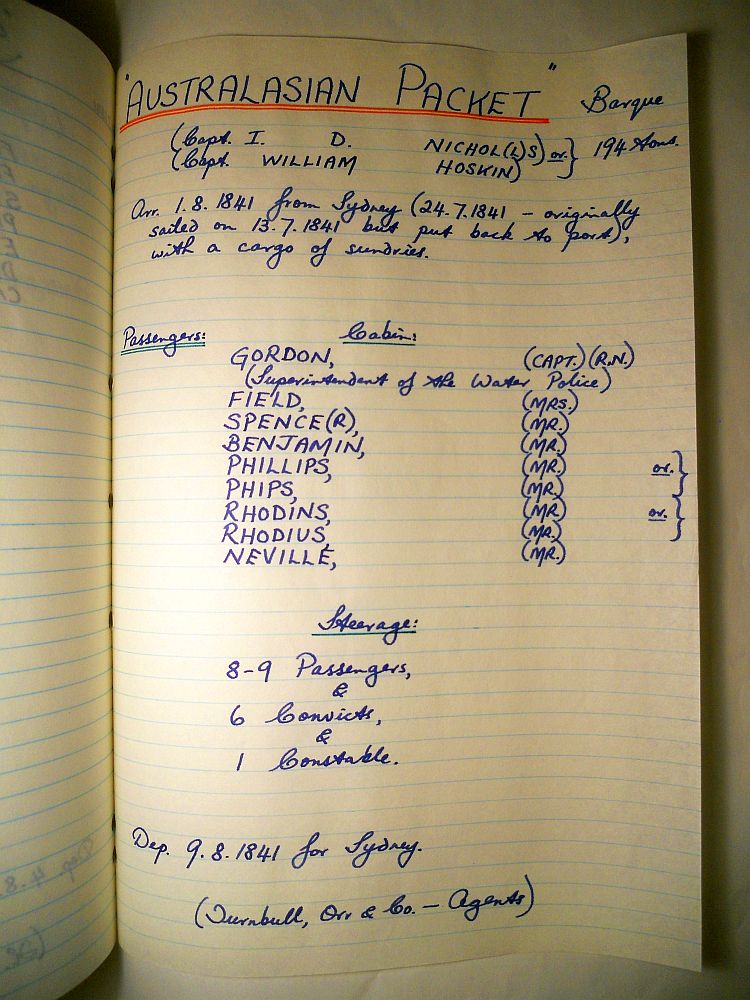 "AUSTRALASIAN PACKET" Barque
(Capt. I. D. NICHOL(L)S) or. } 194 tons.
(Capt. WILLIAM HOSKIN)
Arr. 1.8.1841 from Sydney (24.7.1841 – originally
sailed on 13.7.1841 but put back to port),
with a cargo of sundries.
Passengers: Cabin:
GORDON, (CAPT.) (R.N.)
(Superintendent of the Water Police)
FIELD, (MRS.)
SPENCE(R), (MR.)
BENJAMIN, (MR.)
PHILLIPS, (MR.) or. }
PHIPS, (MR.)
RHODINS, (MR.) or. }
RHODIUS, (MR.)
NEVILLE, (MR.)
Steerage:
8-9 Passengers,
&
6 Convicts,
&
1 Constable.
Dep. 9.8.1841 for Sydney.
(Turnbull, Orr & Co. – Agents)
Dep. 4.8.